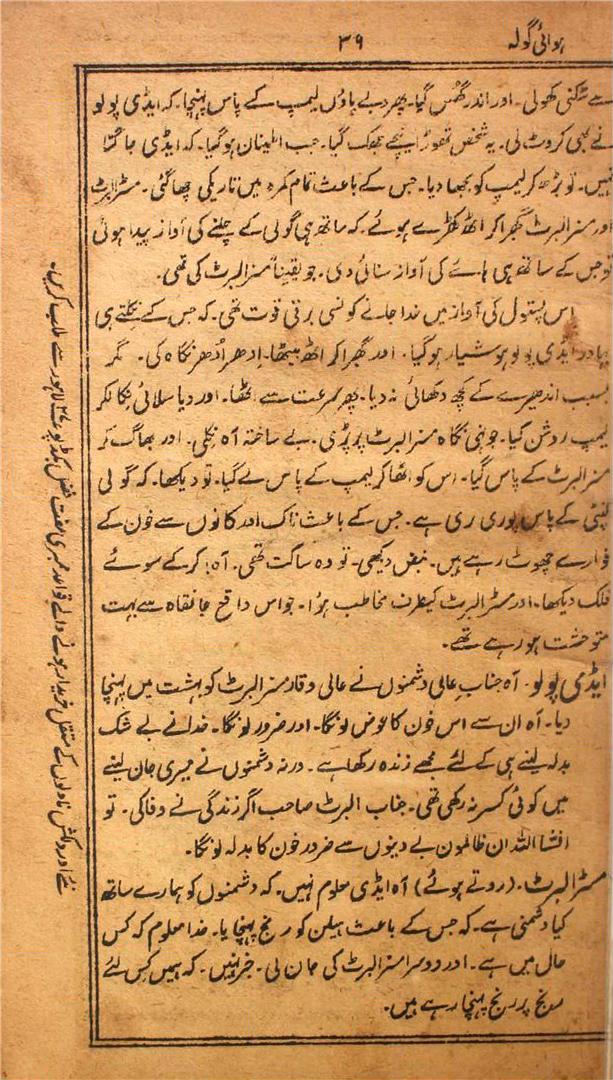 ہوائی گولہ
۳۹
سے چٹکنی کھولی۔ اور اندر گھس گیا۔ پھر دبے پاؤں لیمپ کے پاس پہنچا۔ کہ ایڈی پولو
نے لمبی کروٹ لی۔ یہ شخص تھوڑا نیچے جھک گیا۔ جب اطمینان ہوگیا۔ کہ ایڈی جاگتا
نہیں۔ تو بڑھ کر لیمپ کو بجھا دیا۔ جس کے باعث تمام کمرہ میں تاریکی چھا گئی۔ مسٹر البرٹ
اور مسز البرٹ گھبرا کر اٹھ کھڑے ہوئے۔ کہ ساتھ ہی گولی کے چلنے کی آواز پیدا ہوئی
تو جس کے ساتھ ہی ہائے کی آواز سنائی دی۔ جو یقیناً مسز البرٹ کی تھی۔
اس پستول کی آواز میں خدا جانے کونسی برقی قوت تھی۔ کہ جس کے نکلتے ہی
بہادر ایڈی پولو ہوشیار ہوگیا۔ اور گھبرا کر اٹھ بیٹھا۔ اِدھر اُدھر نگاہ کی۔ مگر
بسبب اندھیرے کے کچھ دکھائی نہ دیا۔ پھر سرعت سے اٹھا۔ اور دیا سلائی نکال کر
لیمپ روشن کیا۔ جونہی نگاہ مسز البرٹ پر پڑی۔ بے ساختہ آہ نکلی۔ اور بھاگ کر
مسز البرٹ کے پاس گیا۔ اس کو اٹھا کر لیمپ کے پاس لے گیا۔ تو دیکھا۔ کہ گولی
کنپٹی کے پاس پوری ری ہے۔ جس کے باعث ناک اور کانوں سے خون کے
فوارے چھوٹ رہے ہیں۔ نبض دیکھی۔ تو وہ ساکت تھی۔ آہ! کر کے سوئے
فلک دیکھا۔ اور مسٹر البرٹ کیطرف مخاطب ہؤا۔ جو اس واقع جانکاہ سے بہت
متوحشت ہو رہے تھے۔
ایڈی پولو۔ آہ جناب عالی دشمنوں نے عالی وقار مسز البرٹ کو بہشت میں پہنچا
دیا۔ آہ ان سے اس خون کا عوض لونگا۔ اور ضرور لونگا۔ خدا نے بے شک
بدلہ لینے ہی کے لئے مجھے زندہ رکھا ہے۔ ورنہ دشمنوں نے میری جان لینے
میں کوئی کسر نہ رکھی تھی۔ جناب البرٹ صاحب اگر زندگی نے وفا کی۔ تو
انشااللہ ان ظالموں بے دینوں سے ضرور خون کا بدلہ لونگا۔
مسٹر البرٹ۔ (روتے ہوئے) آہ ایڈی معلوم نہیں۔ کہ دشمنوں کو ہمارے ساتھ
کیا دشمنی ہے۔ کہ جس کے باعث ہیلن کو رنج پہنچایا۔ خدا معلوم کہ کس
حال میں ہے۔ اور دوسرا مسز البرٹ کی جان لی۔ خبر نہیں۔ کہ ہمیں کس لئے
رنج پر رنج پہنچا رہے ہیں۔
نئے اور دلکش ناولوں کے مستقل خریدار ہونے والے قواعد ممبری مفت فضل بکڈپو لاہور سے طلب کریں۔